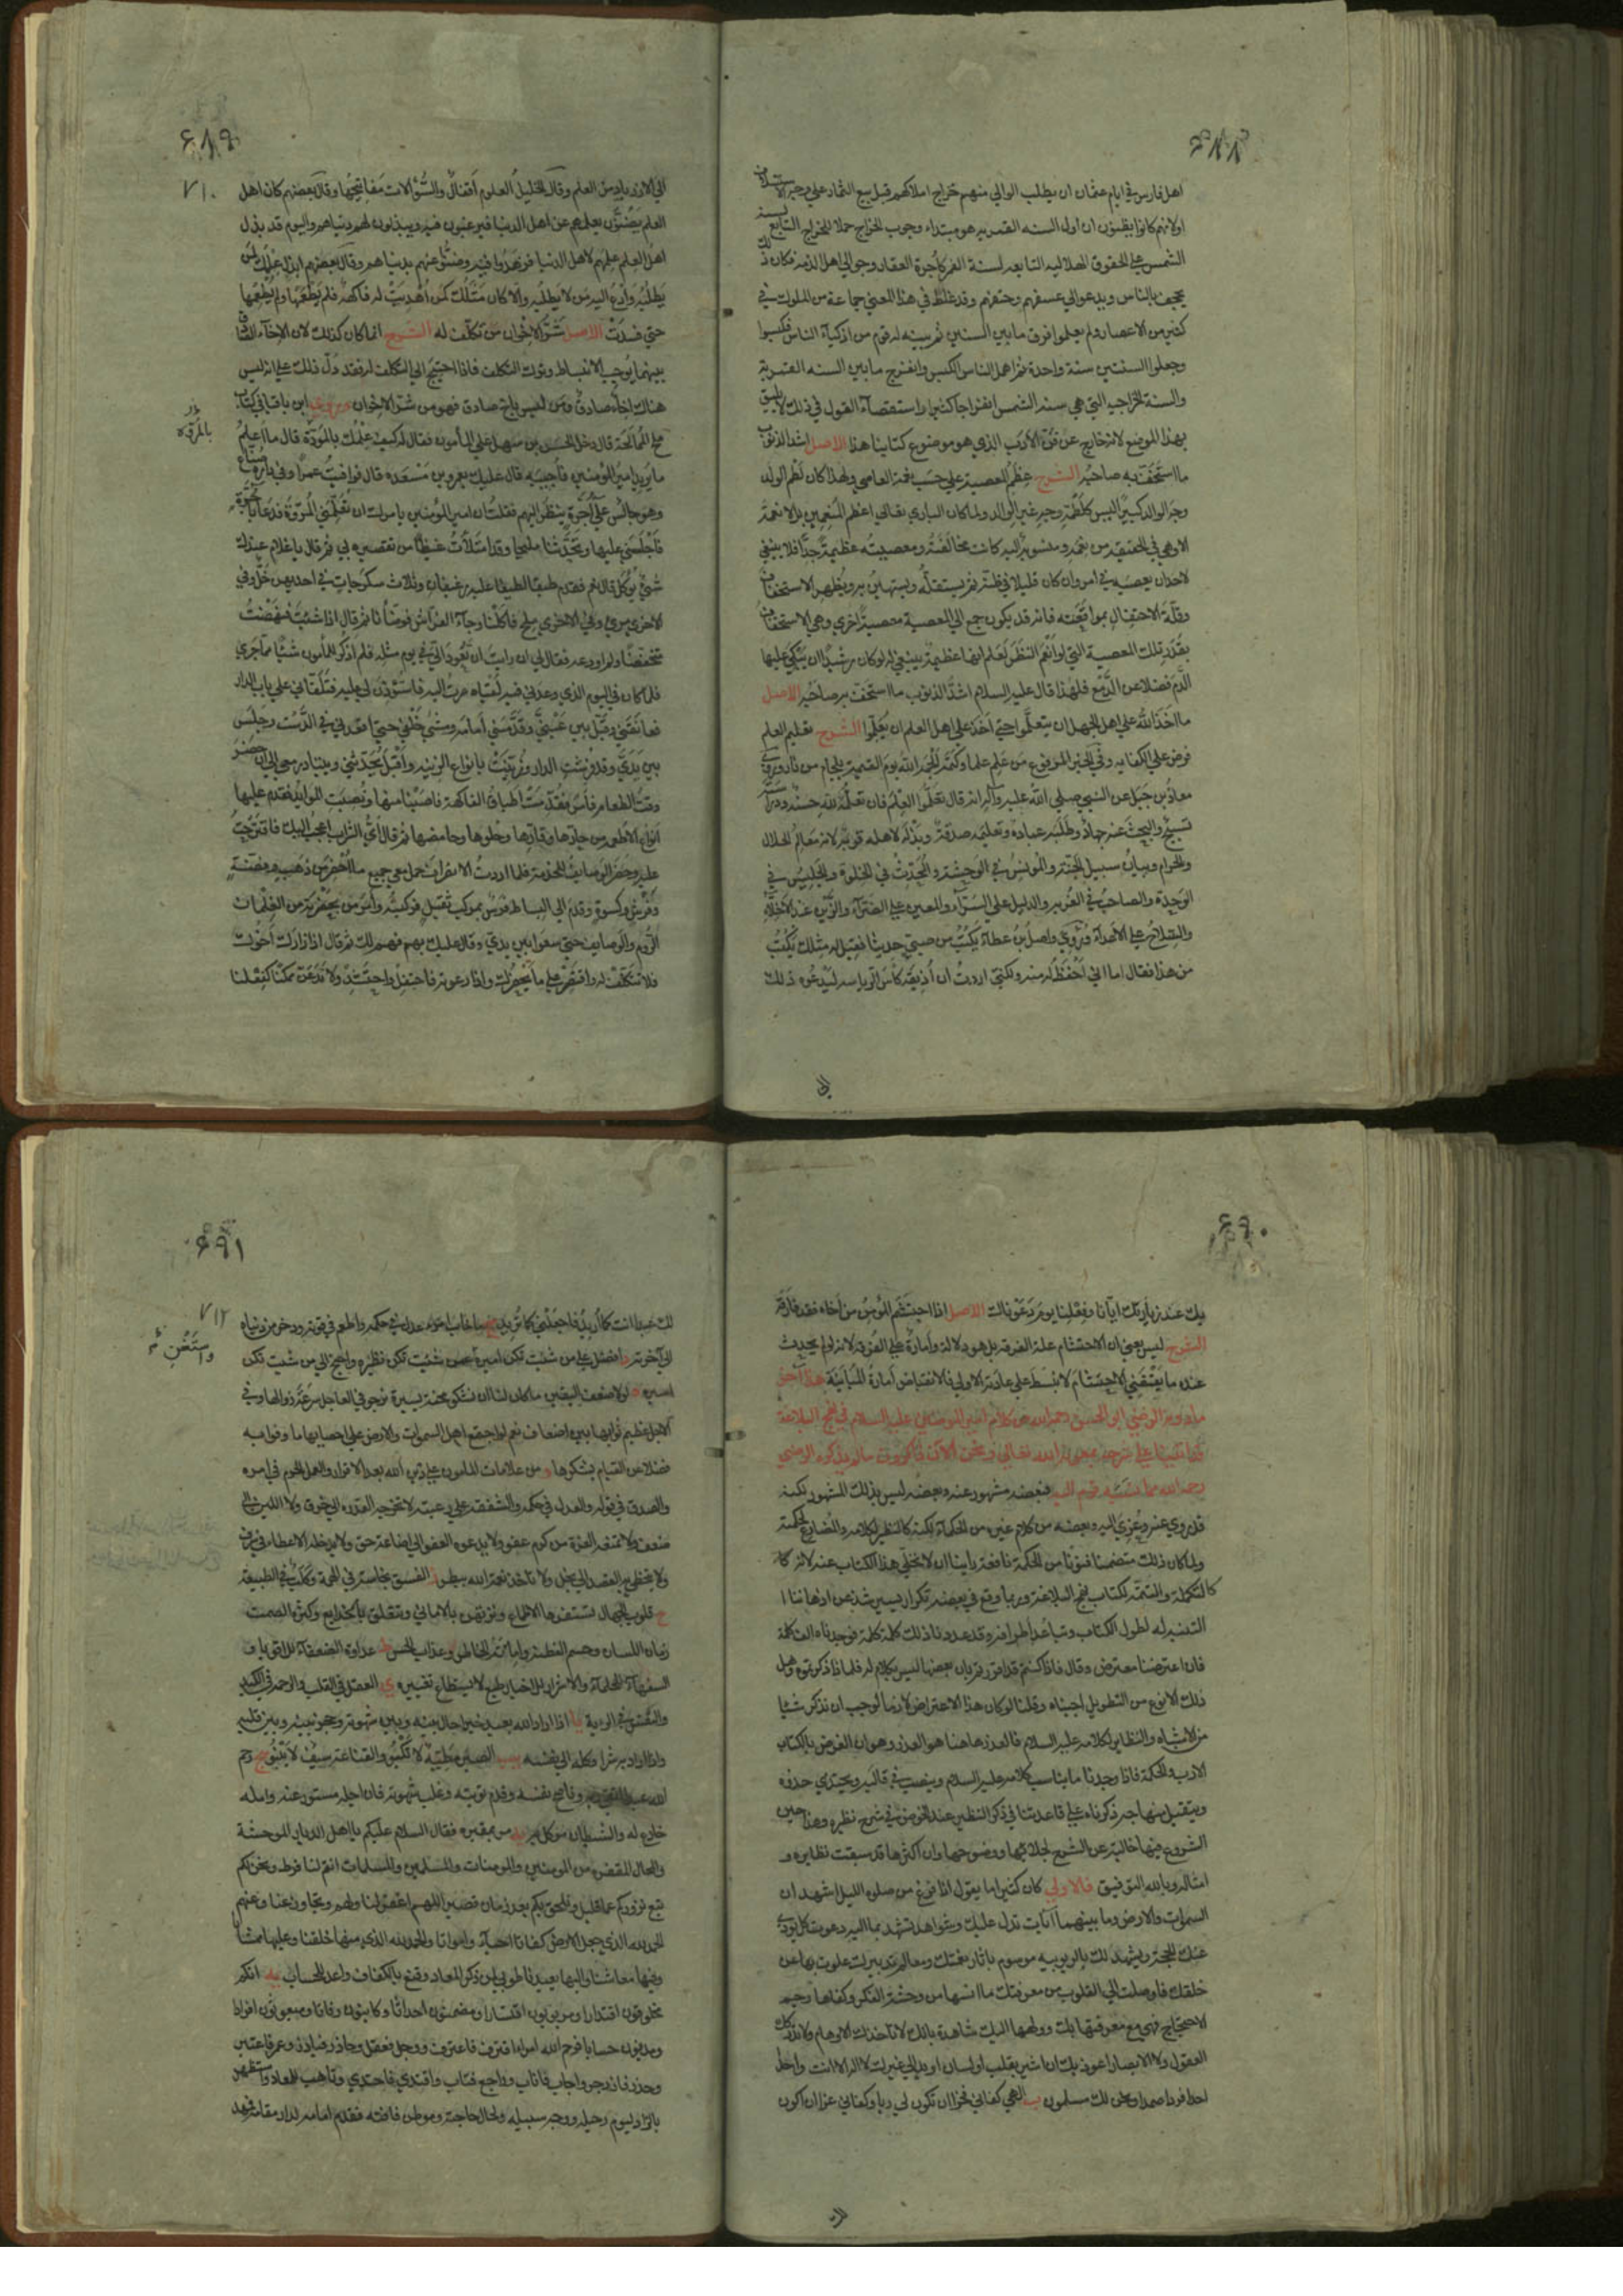 ٦٨٨
اهل فارس في ايام عثمان ان يطلب الوالي منهم خراج املاكهم قبل بيع الثمار علي وجه الاستسلاف
اولانهم كانوا يظنون ان اول السنه القمريه هو مبتداء وجوب الخراج حملا للخراج التابع لسنة
الشمس علي الحقوق الهلاليه التابعه لسنة القمر كأجرة العقار وجوالي اهل الذمه فكان ذلك
يجحف بالناس ويدعو الي عسفهم وحيفهم وقد غلط في هذا المعني جماعة من الملوك في
كثير من الاعصار ولم يعلموا فرق ما بين السنتين ثم تنبه له قوم من اذكياء الناس فكبسوا
وجعلوا السنتين سنة واحدة ثم اهمل الناس الكبس وانفرج ما بين السنه القمرية
والسنة الخراجيه التي هي سنه الشمس انفراجا كثيرا واستقصاء القول في ذلك لا يليق
بهذا الموضع لانه خارج عن فن الادب الذي هو موضوع كتابنا هذا الاصل اشد الذنوب
ما استخف به صاحبه الشرح عظم المعصية علي حسب نعمة العاصي ولهذا كان لطم الولد
وجه الوالد كبيرا ليس كلطمه وجه غير الوالد ولما كان الباري تعالي اعظم المنعمين بل لا نعمة
الا وهي في الحقيقه من نعمه ومنسوبة اليه كانت مخالفته ومعصيته عظيمة جدا فلا ينبغي
لاحد ان يعصيه في امر وان كان قليلا في ظنه ثم يستقله ويستهين به ويظهر الاستخفاف
وقلة الاحتفال بمواقعته فانه قد يكون جمع الي المعصية معصية اخري وهي الاستخفاف
بقدر تلك المعصية التي لو انعم النظر لعلم انها عظيمة ينبغي له لو كان رشيدا ان يبكي عليها
الدم فضلا عن الدمع فلهذا قال عليه السلام اشد الذنوب ما استخف به صاحبه الاصل
ما اخذ الله علي اهل الجهل ان يتعلموا حتي اخذ علي اهل العلم ان يعلموا الشرح تعليم العلم
فرض علي الكفايه وفي الخبر المرفوع من علم علما وكتمه الجمه الله يوم القيمة بلجام من نار وروي
معاذ بن جبل عن النبي صلي الله عليه وآله انه قال تعلموا العلم فان تعلمه لله حسنة ودراسته
تسبيح والبحث عنه جهاد وطلبه عبادة وتعليمه صدقة وبذله لاهله قربة لانه معالم الحلال
والحرام وبيان سبيل الجنة والمونس في الوحشة والمحدث في الخلوة والجليس في
الوحدة والصاحب في الغربه والدليل علي السراء والمعين علي الضراء والزين عند الاخلاء
والسلاح علي الاعداء وروي واصل بن عطاء يكتب من صبي حديثا فقيل له مثلك يكتب
من هذا فقال اما اني احفظ له منه ولكني اردت ان اذيقه كاس الرياسه ليدعوه ذلك
الي
٦٨٩
٧١٠
الي الازدياد من العلم وقال الخليل العلوم اقفال والسؤالات مفاتيحها وقال بعضهم كان اهل
العلم يضنون بعلمهم عن اهل الدنيا فيرغبون فيه ويبذلون لهم دنياهم واليوم قد بذل
اهل العلم علمهم لاهل الدنيا فزهدوا فيه وضنوا عنهم بدنياهم وقال بعضهم ابذل علمك لمن
يطلبه وادع اليه من لا يطلبه والا كان مثلك كمن اهديت له فاكهة فلم يطعمها ولم يطعمها
حتي فسدت الاصل شر الاخوان من تكلف له الشرح انما كان كذلك لان الاخاء الصادق
بينهما يوجب الانبساط وترك التكلف فاذا احتيج الي التكلف له فقد دل ذلك علي انه ليس
هناك اخاء صادق ومن ليس باخ صادق فهو من شر الاخوان وروي ابن ناقيا في كتاب
ملح الممالحة قال دخل الحسن بن سهل علي المأمون فقال له كيف علمك بالمروة قال ما اعلم
بالمروة
ما يريد امير المؤمنين فاجيبه قال عليك بعمرو بن مسعدة قال فوافيت عمرا وفي داره صناع
وهو جالس علي آجرة ينظر اليهم فقلت ان امير المؤمنين يامرك ان تعلمني المروة فدعا بآجرة
فاجلسني عليها وتحدثنا مليا وقد امتلأت غيظا من تقصيره بي ثم قال يا غلام عندك
شيء يوكل قال نعم فقدم طبقا لطيفا عليه رغيفان وثلاث سكرجات في احديهن خل وفي
الاخري مري وفي الاخري ملح فاكلنا وجاء الفراش فوضأنا ثم قال اذا شئت فنهضت
متحفظا ولم اودعه فقال لي ان رايت ان تعود الي في يوم مثله فلم اذكر للمأمون شيئا مما جري
فلما كان في اليوم الذي وعدني فيه لقياه سرت اليه فاستؤذن لي عليه فتلقاني علي باب الدار
فعانقني وقبل بين عيني وقدمني امامه ومشي خلفي حتي اقعدني في الدست وجلس
بين يدي وقد فرشت الدار وزينت بانواع الزينه واقبل يحدثني ويتنادر معي الي ان حضر
وقت الطعام فامر فقدمت اطباق الفاكهة فاصبنا منها ونصبت الموايد فقدم عليها
انواع الاطعمه من حارها وقارها وحلوها وحامضها ثم قال اي الشراب اعجب اليك فاقترحت
عليه وحضر الوصايف للخدمة فلما اردت الانصراف حمل معي جميع ما احضر من ذهب وفضة
وفرش وكسوة وقدم الي البساط فرس بمركب ثقيل فركبته وامر من بحضرته من الغلمان
الروم والوصايف حتي سعوا بين يدي وقال عليك بهم فهم لك ثم قال اذا زارك اخوك
فلا تتكلف له واقتصر علي ما يحضرك واذا دعوته فاحتفل واحتشد ولا تدعن ممكنا كفعلنا
٦٩٠
بك عند زيارتك ايانا وفعلنا يوم دعوناك الاصل اذا احتشم المؤمن من اخاه فقد فارقه
الشرح ليس يعني ان الاحتشام علة الفرقة بل هو دلالة وامارة علي الفرقة لانه لو لم يحدث
عنده ما يقتضي الاحتشام لانبسط علي عادته الاولي فالانقباض امارة المباينة هذا آخر
ما دونه الرضي ابو الحسن رحمه الله من كلام امير المومنين عليه السلام في نهج البلاغة
قد اتينا علي شرحه بمعونة الله تعالي ونحن الان ذاكرون ما لم يذكره الرضي
رحمه الله مما نسبه قوم اليه فبعضه مشهور عنه وبعضه ليس بذلك المشهور لكنه
قد روي عنه وعزي اليه وبعضه من كلام غيره من الحكماء لكنه كالنظير لكلامه والمضارع لحكمته
ولما كان ذلك متضمنا فنونا من الحكمة نافعة راينا ان لا نخلي هذا الكتاب عنه لانه كا
كالتكملة والتتمة لكتاب نهج البلاغة وربما وقع في بعضه تكرار يسير شذ عن اذهاننا ا
التنبه له لطول الكتاب وتباعد اطرافه وقد عددنا ذلك كلمة كلمة فوجدناه الف كلمة
فان اعترضنا معترض وقال فاذا كنتم قد اقررتم بان بعضها ليس بكلام له فلماذا ذكرتموه وهل
ذلك الا نوع من التطويل اجبناه وقلنا لو كان هذا الاعتراض لازما لوجب ان لا نذكر شيئا
من الاشباه والنظاير لكلامه عليه السلام فالعذر هاهنا هو العذر هناك وهو ان الغرض بالكتاب
الادب والحكمة فاذا وجدنا ما يناسب كلامه عليه السلام وينصب في قالبه ويحتذي حذوه
ويتقبل منهاجه ذكرناه علي قاعدتنا في ذكر النظير عند الخوض في شرح نظيره وهذا حين
الشروع فيها خالية عن الشرح لجلائها ووضوحها وان اكثرها قد سبقت نظايره و
امثاله وبالله التوفيق فالاولي كان كثيرا ما يقول اذا فرغ من صلوه الليل اشهد ان
السموات والارض وما بينهما آيات تدل عليك وشواهد تشهد بما اليه دعوت كل ما يودي
عنك الحجة ويشهد لك بالربوبيه موسوم بآثار نعمتك ومعالم تدبيرك علوت بها عن
خلقك فاوصلت الي القلوب من معرفتك ما انسها من وحشة الفكر وكفاها رجم
الاحتجاج فهي مع معرفتها بك وولهها اليك شاهدة بانك لا تاخذك الاوهام ولا تدركك
العقول ولا الابصار اعوذ بك ان اشير بقلب او لسان او يد الي غيرك لا اله الا انت واحدا
احدا فردا صمدا ونحن لك مسلمون ب الهي كفاني فخرا ان تكون لي ربا وكفاني عزا ان اكون
٦٩١
٧١٢
لك عبدا انت كما اريد فاجعلني كما تريد ج ما خاف امرء عدل في حكمه واطعم من قوته وذخر من دنياه
لاخرته د افضل علي من شئت تكن اميره واستغن عمن شئت تكن نظيره واحتج الي من شئت تكن
واستغن
اسيره ه لولا ضعف اليقين ما كان لنا ان نشكو محنة يسيرة نرجو في العاجل سرعة زوالها وفي
الاجل عظيم ثوابها بين اضعاف نعم لو اجتمع اهل السموات والارض علي احصايها ما وفوا به
فضلا عن القيام بشكرها و من علامات المامون علي دين الله بعد الاقرار والعمل الحزم في امره
والصدق في قوله والعدل في حكمه والشفقه علي رعيته لا تخرجه القدره الي خرق ولا اللين الي
ضعف ولا تمنعه العزة من كرم عفو ولا يدعوه العفو الي اضاعة حق ولا يدخله الاعطاء في سرف
ولا يتخطي به القصد الي بخل ولا تاخذه نعم الله ببطر ز الفسق نجاسة في الهمة وكلب في الطبيعة
ح قلوب الجهال تستفزها الاطماع وترتهن بالاماني وتتعلق بالخدايع وكثرة الصمت
زمام اللسان وحسم الفطنة واماتة الخاطر وعذاب الحس ط عداوة الضعفاء للاقوياء و
السفهاء للحلماء والاشرار للاخيار طبع لا يستطاع تغييره ي العقل في القلب والرحمه في الكبد
والتنفس في الرية يا اذا اراد الله بعبد خيرا حال بينه وبين شهوته وحجز بينه وبين قلبه
واذا اراد به شرا وكله الي نفسه يب الصبر مطية لا تكبو والقناعة سيف لا ينبو يج رحم
الله عبدا اتقي ربه وناصح نفسه وقدم توبته وغلب شهوته فان اجله مستور عنه وامله
خادع له والشيطان موكل به يد مر بمقبرة فقال السلام عليكم يا اهل الديار الموحشة
والمحال المقفرة من المومنين والمومنات والمسلمين والمسلمات انتم لنا فرط ونحن لكم
تبع نزوركم عما قليل ونلحق بكم بعد زمان قصير اللهم اغفر لنا ولهم وتجاوز عنا وعنهم
الحمد لله الذي جعل الارض كفاتا احياء وامواتا والحمد لله الذي منها خلقنا وعليها ممشانا
وفيها معاشنا واليها يعيدنا طوبي لمن ذكر المعاد وقنع بالكفاف واعد للحساب يه انكم
مخلوقون اقتدارا ومربوبون اقتسارا ومضمنون اجداثا وكاينون رفاتا ومبعوثون افرادا
ومدينون حسابا فرحم الله امرءا اقترف فاعترف ووجل فعقل وحاذر فبادر وعمر فاعتبر
وحذر فازدجر واجاب فاناب وراجع فتاب واقتدي فاحتذي وتاهب للمعاد واستظهر
بالزاد ليوم رحيله ووجه سبيله ولحال حاجته وموطن فاقته فقدم امامه لدار مقامه فمهد